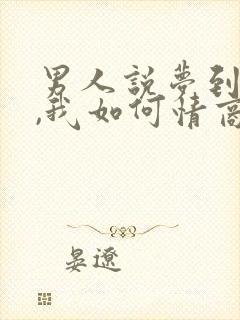 男人說夢到
,我如何情商
晏遼